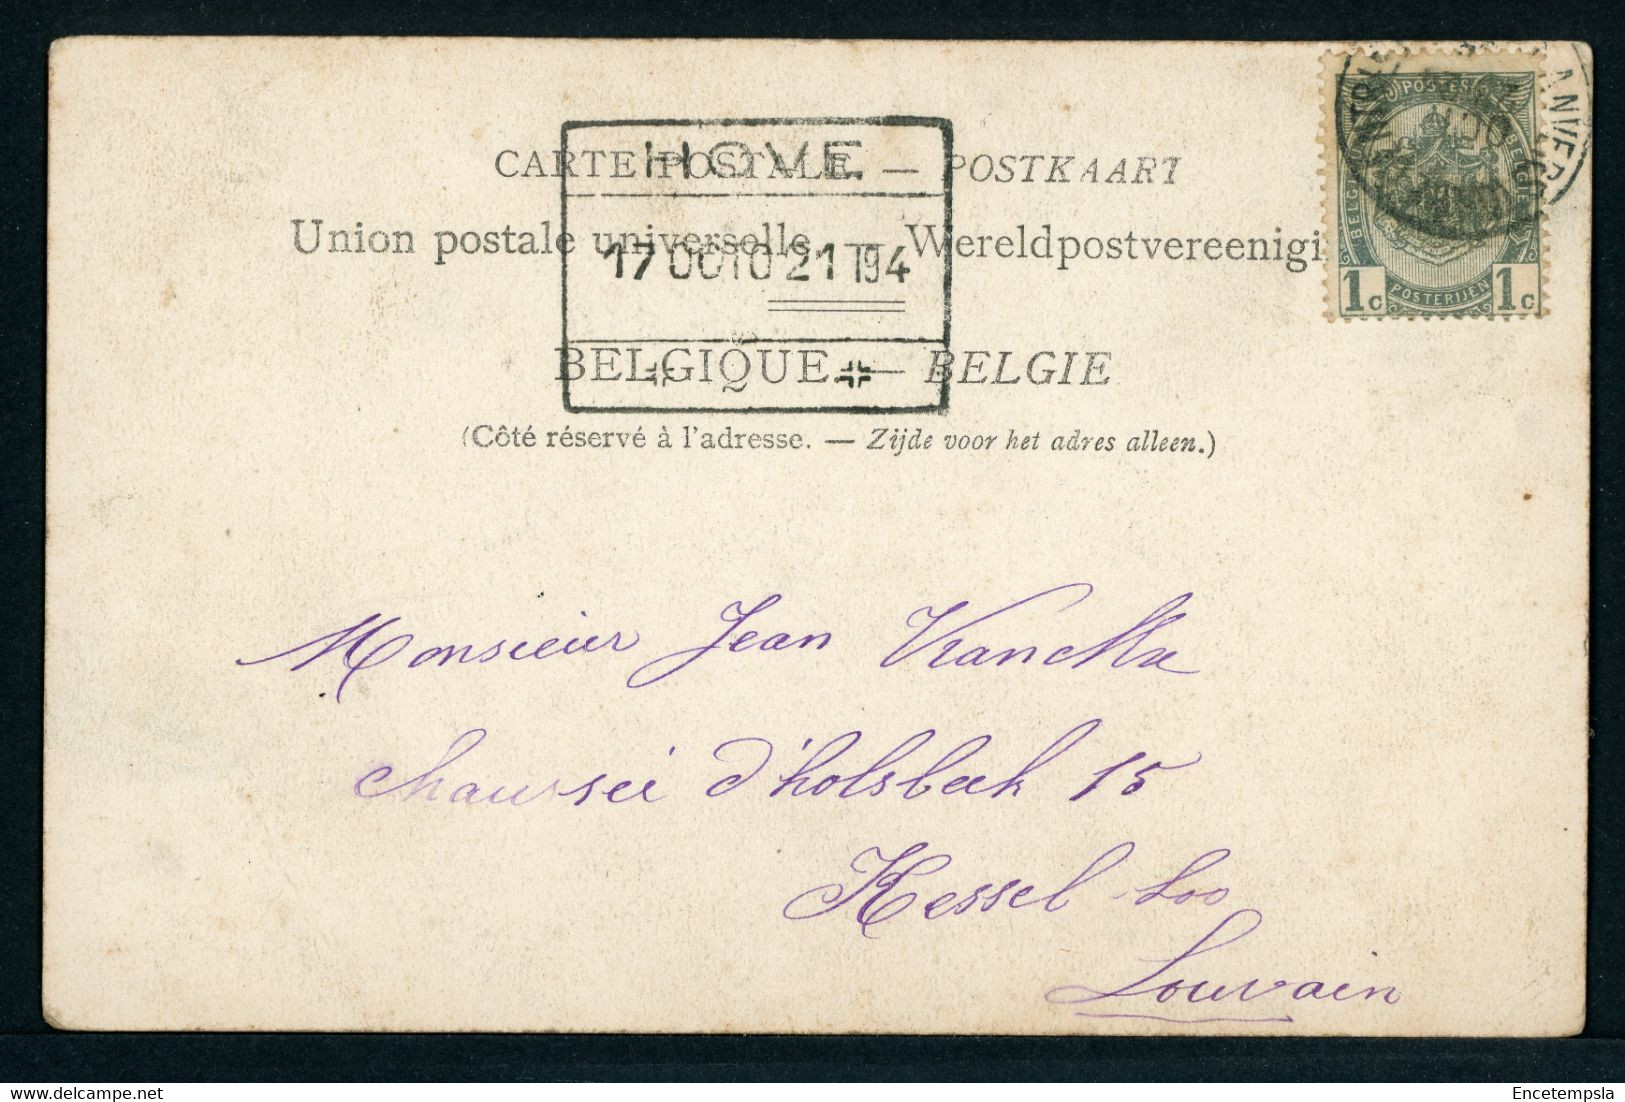 CARTE POSTALE. — POSTKAART
Union postale universelle — Wereldpostvereenigi
BELGIQUE — BELGIE
(Côté réservé à l'adresse. — Zijde voor het adres alleen.)
HOVE
17 OCTO 21 T 194
ANVERS
POSTES
BELGIQUE
BELGIË
1c POSTERIJEN 1c
Monsieur Jean
chaussei d'holsbeek 15
Kessel-Loo
Louvain
Encetempsla